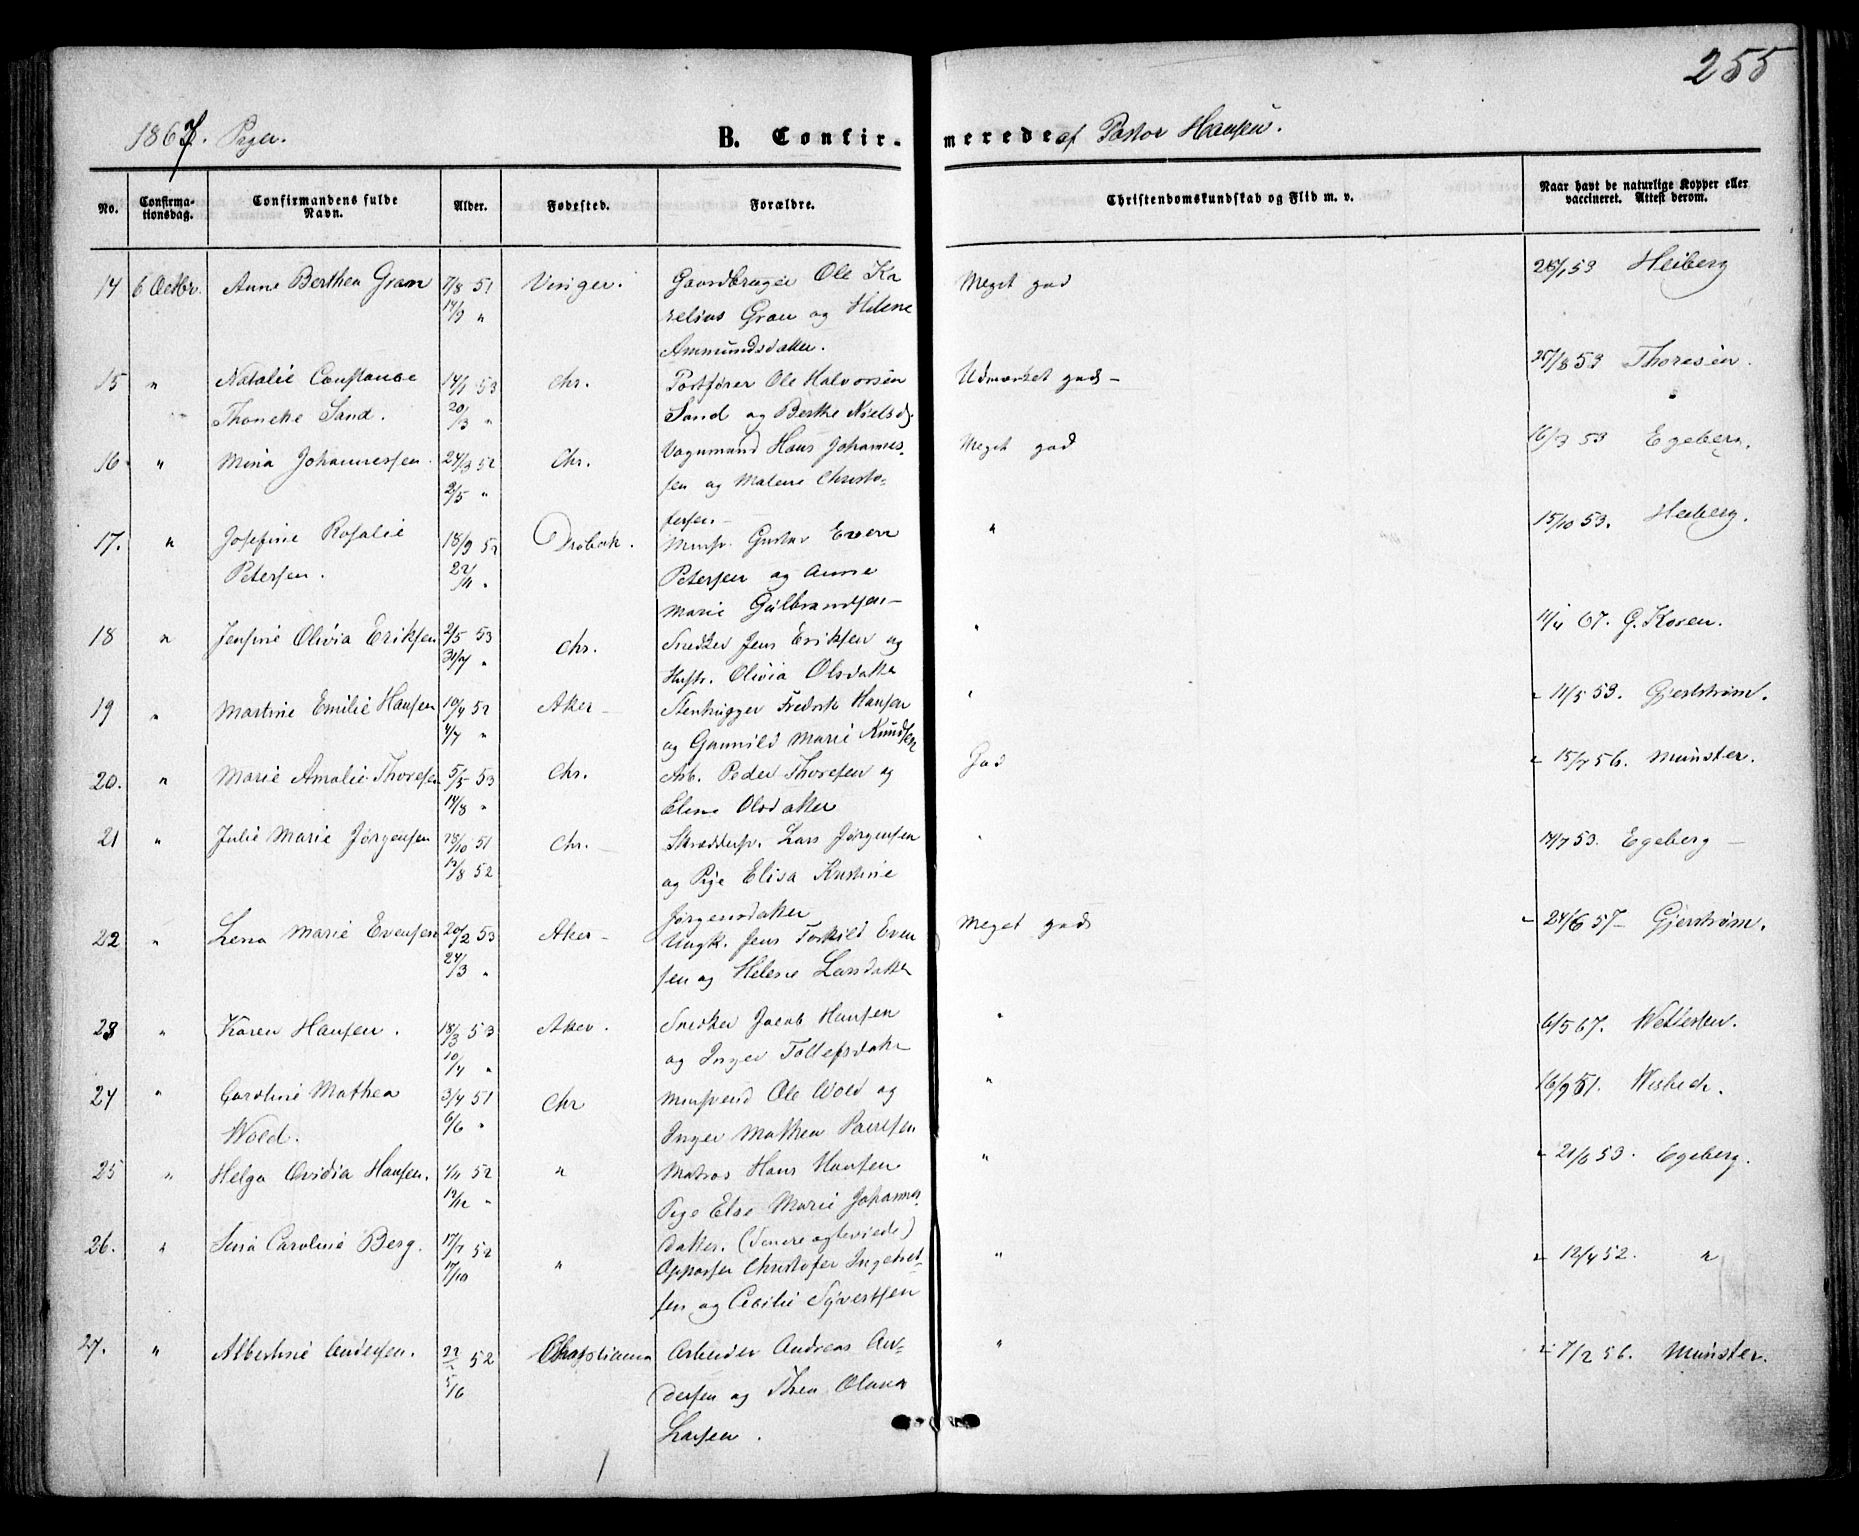 255
1867. Piger. B. Confirmerede af Pastor Hansen.
No. Confirmationsdag. Confirmandens fulde Navn. Alder. Fødested. Forældre. Christendomskundskab og Flid m. v. Naar havt de naturlige Kopper eller vaccineret. Attest derom.
14 6 Octbr. Anne Berthea Gran 7/8 51 Vinger. Gaardbruger Ole Ka Meget god 26/1 53 Heiberg
14/9 " relius Gran og Helene
Ammundsdatter.
15 " Natalie Constance 14/1 53 Chr. Portfører Ole Halvorsen Udmærket god - 25/8 53 Thoresen.
Thoncke Sand. 20/3 " Sand og Berthe Nielsd.
16 " Mina Johannessen. 24/3 52 Chr. Vognmand Hans Johannes- Meget god 16/3 53 Egeberg.
2/5 " sen og Malene Christo-
fersen -
17. " Josefine Rosalie 18/9 52 Drøbak. Mursv. Gustav Even " 15/10 53. Heiberg.
Petersen. 22/11 " Petersen og Anne
Marie Gulbrandsen -
18 " Jensine Olivia Eriksen 2/5 53 Chr. Snedker Jens Eriksen og " 11/4 67. G. Koren.
31/7 " Hustr. Olivia Olsdatter
19 " Martine Emilie Hansen 10/4 52 Aker - Stenhugger Fredrik Hansen " " 11/5 53. Gjerstrøm.
4/7 " og Gunnild Marie Knudsen
20. " Marie Amalie Thoresen 5/5 53 Chr. Arb. Peder Thoresen og God " 15/7 56. Münster.
14/8 " Eline Olsdatter
21 " Julie Marie Jørgensen 18/10 51 Chr. Skræddersv. Lars Jørgensen " 14/7 53. Egeberg -
12/8 52 og Pige Elisa Kristine
Jørgensdatter
22 " Lena Marie Evensen 20/2 53 Aker - Ungk. Jens Torkild Even Meget god " 24/6 57 - Gjerstrøm.
24/3 " sen og Helene Larsdatter
23 " Karen Hansen. 18/3 53 Aker. Snedker Jacob Hansen " 6/5 67. Wettersen.
10/4 " og Inger Tollefsdatter
24 " Caroline Mathea 3/4 51 Chr Mursvend Ole Wold og " 16/9 51. Wisbech.
Wold. 6/6 " Inger Mathea Paulsen
25 " Helga Ovidia Hansen. 1/11 52 " Matros Hans Hansen " " 21/6 53. Egeberg.
12/12 " Pige Else Marie Johannes
datter. (Senere ægteviede)
26. " Sina Caroline Berg. 17/7 52 " Oppasser Christofer Ingebret- " " 12/4 52. "
17/10 sen og Cecilie Syvertsen
27. " Albertine Andersen. 22/2 52 Christiania Arbeider Andreas An- " " 7/2 56. Münster.
5/6 dersen og Thea Olava
Larsen.